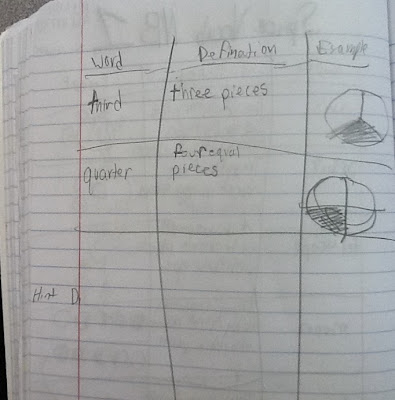 Word Defination Example
third three pieces
quarter four equal
pieces
Hint D